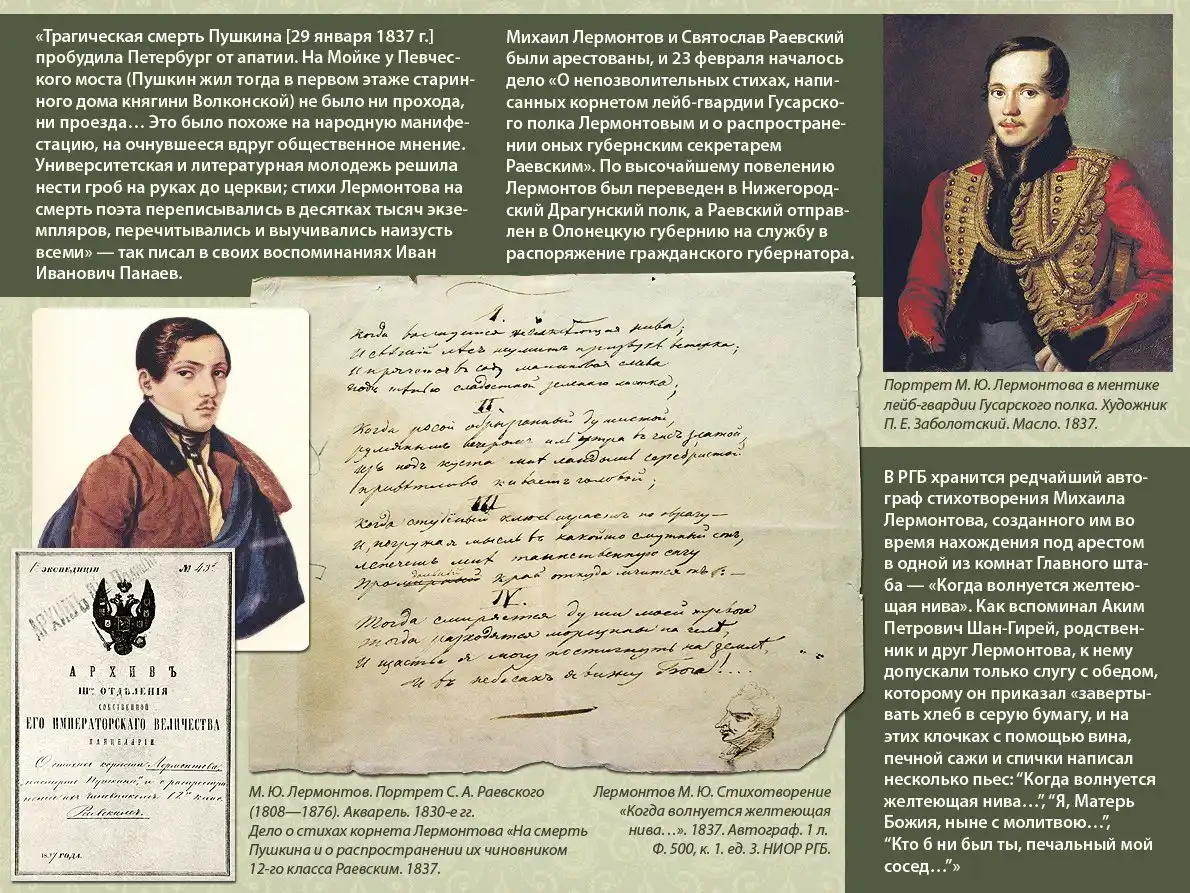 «Трагическая смерть Пушкина [29 января 1837 г.]
пробудила Петербург от апатии. На Мойке у Певчес-
кого моста (Пушкин жил тогда в первом этаже старин-
ного дома княгини Волконской) не было ни прохода,
ни проезда… Это было похоже на народную манифе-
стацию, на очнувшееся вдруг общественное мнение.
Университетская и литературная молодежь решила
нести гроб на руках до церкви; стихи Лермонтова на
смерть поэта переписывались в десятках тысяч экзе-
мпляров, перечитывались и выучивались наизусть
всеми» — так писал в своих воспоминаниях Иван
Иванович Панаев.
Михаил Лермонтов и Святослав Раевский
были арестованы, и 23 февраля началось
дело «О непозволительных стихах, напи-
санных корнетом лейб-гвардии Гусарско-
го полка Лермонтовым и о распростране-
нии оных губернским секретарем
Раевским». По высочайшему повелению
Лермонтов был переведен в Нижегород-
ский Драгунский полк, а Раевский отправ-
лен в Олонецкую губернию на службу в
распоряжение гражданского губернатора.
Портрет М. Ю. Лермонтова в ментике
лейб-гвардии Гусарского полка. Художник
П. Е. Заболотский. Масло. 1837.
I.
Когда волнуется желтеющая нива;
И свежий лѣсъ шумитъ при звукѣ вѣтерка;
И прячется въ саду малиновая слива
Подъ тѣнью сладостной зеленаго листка;
II
Когда росой обрызганный душистой,
румянымъ вечеромъ иль утра въ часъ златой,
изъ подъ куста мнѣ ландышъ серебристой
привѣтливо киваетъ головой;
III
Когда студеный ключъ играетъ по оврагу—
И, погружая мысль въ какой-то смутный сонъ,
лепечетъ мнѣ таинственную сагу
Про край откуда мчится онъ:—
IV.
Тогда смиряется души моей тревога
тогда расходятся морщины на челѣ,
И щастье я могу постигнуть на землѣ,
И въ небесахъ я вижу Бога!....
Iя экспедиціи
АРХИВЪ
IIIго ОТДѢЛЕНІЯ
СОБСТВЕННОЙ
ЕГО ИМПЕРАТОРСКАГО ВЕЛИЧЕСТВА
КАНЦЕЛЯРІИ
Лермонтова,
Пушкина и о
12го
Раевскимъ.
1837 ГОДА.
М. Ю. Лермонтов. Портрет С. А. Раевского
(1808—1876). Акварель. 1830-е гг.
Дело о стихах корнета Лермонтова «На смерть
Пушкина и о распространении их чиновником
12-го класса Раевским. 1837.
Лермонтов М. Ю. Стихотворение
«Когда волнуется желтеющая
нива…». 1837. Автограф. 1 л.
Ф. 500, к. 1. ед. 3. НИОР РГБ.
В РГБ хранится редчайший авто-
граф стихотворения Михаила
Лермонтова, созданного им во
время нахождения под арестом
в одной из комнат Главного шта-
ба — «Когда волнуется желтею-
щая нива». Как вспоминал Аким
Петрович Шан-Гирей, родствен-
ник и друг Лермонтова, к нему
допускали только слугу с обедом,
которому он приказал «заверты-
вать хлеб в серую бумагу, и на
этих клочках с помощью вина,
печной сажи и спички написал
несколько пьес: “Когда волнуется
желтеющая нива…”, “Я, Матерь
Божия, ныне с молитвою…”,
“Кто б ни был ты, печальный мой
сосед…”»